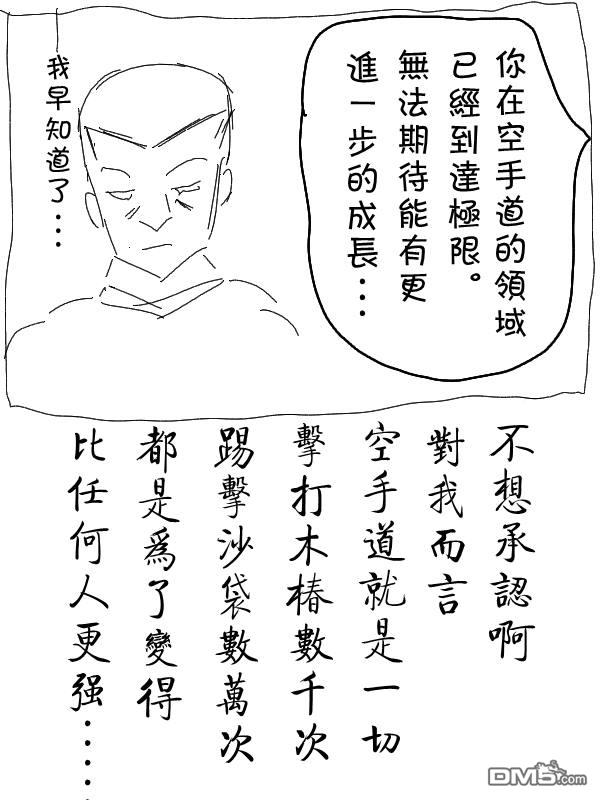 你在空手道的領域
已經到達極限。
無法期待能有更
進一步的成長...
我早知道了...
不想承認啊
對我而言
空手道就是一切
擊打木樁數千次
踢擊沙袋數萬次
都是爲了變得
比任何人更强.....
DM5.com